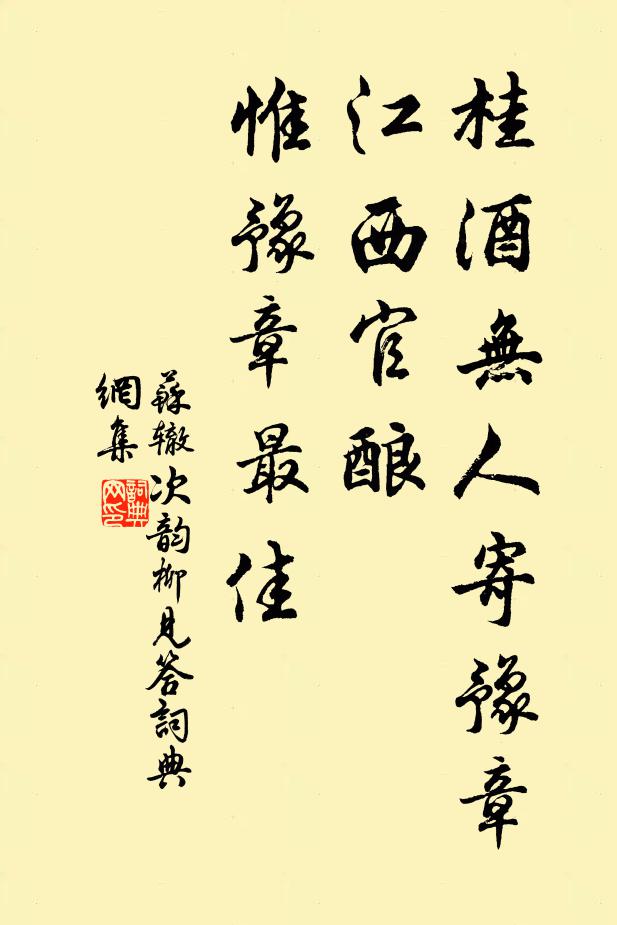 桂酒無人寄豫章
江西官酿
惟豫章最佳
蘇辙次韵柳见答詞典
網集
詞典
网印